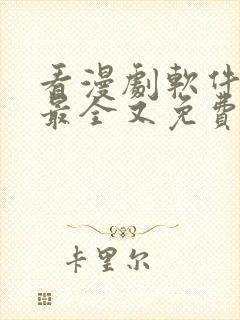 看漫劇軟件
最全又免費
卡里尔